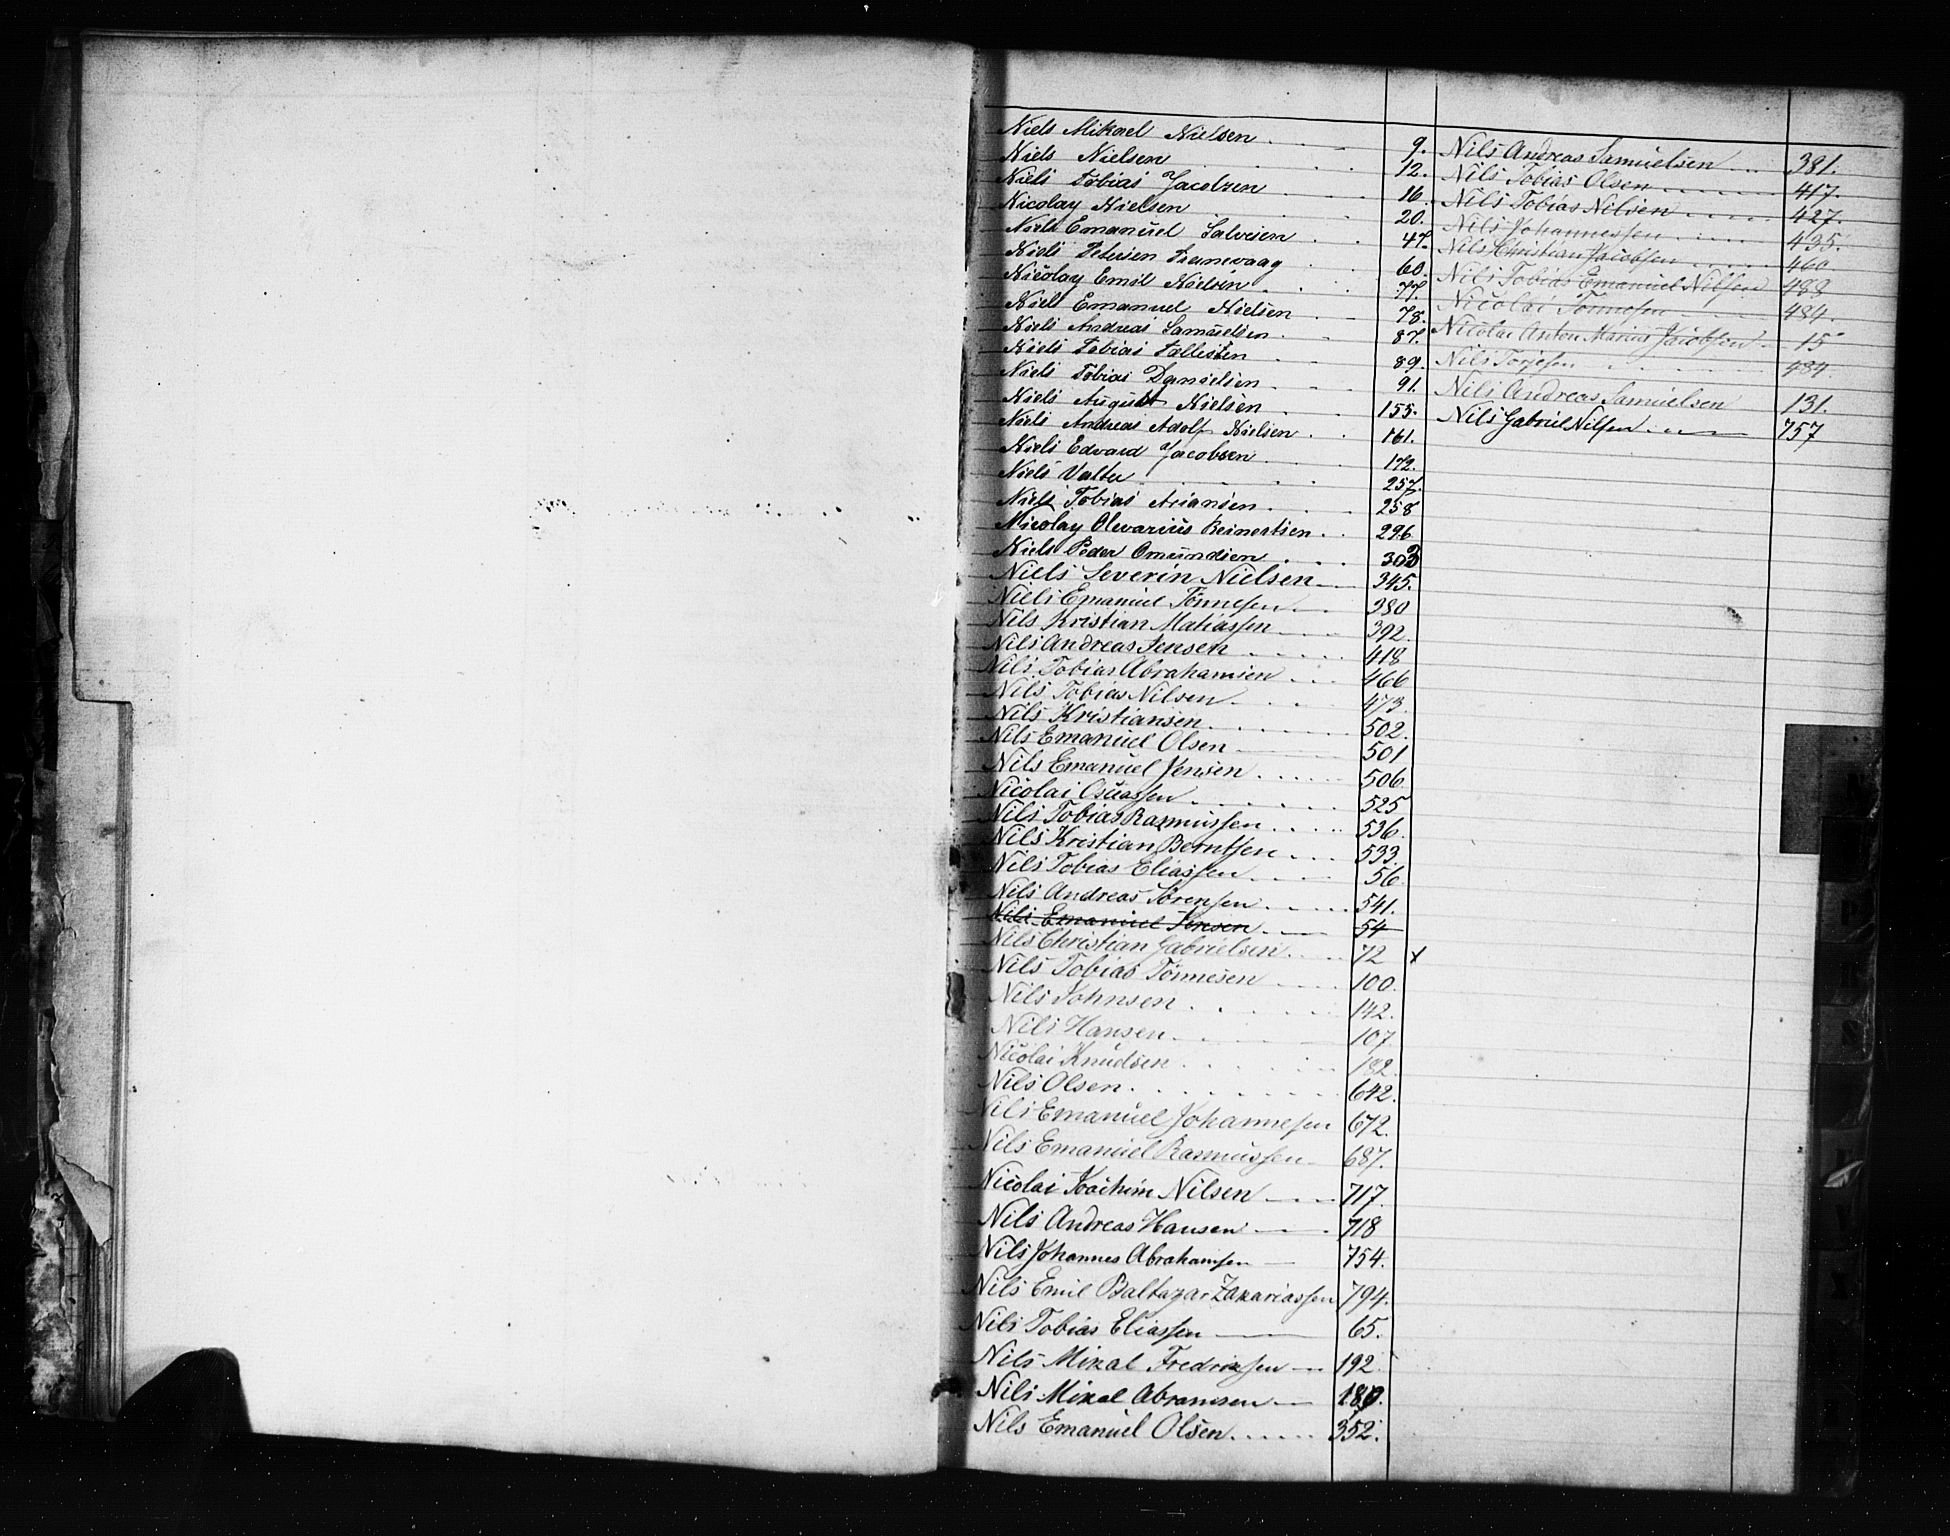 Niels Mikael Nielsen . . . . 9.
Niels Nielsen . . . . 12.
Niels Tobias Jacobsen . . . 16
Nicolay Nielsen . . . 20.
Niels Emanuel Salvesen . . 47.
Niels Petersen Tranevaag . . 60.
Nicolay Emil Nielsen . . . 77.
Niels Emanuel Nielsen . . 78.
Niels Andreas Samuelsen . . 87.
Niels Tobias Tallesen . . 89.
Niels Tobias Danielsen . . . 91.
Niels August Nielsen . . . 155.
Niels Andreas Adolf Nielsen . . 161.
Niels Edvard Jacobsen . . . 172.
Niels Valter . . . . 257.
Niels Tobias Ariansen . . . 258
Nicolay Olvarius Reinertsen . . 296
Niels Peder Omundsen . . . 303
Niels Severin Nielsen 345.
Niels Emanuel Tönnesen 380
Nils Kristian Matiassen 392.
Nils Andreas Jensen . . . . 418
Nils Tobias Abrahamsen . . . 466
Nils Tobias Nilsen . . . . 473.
Nils Kristiansen . . . . 502.
Nils Emanuel Olsen 501
Nils Emanuel Jensen . . . . 506
Nicolai Osuassen . . . . 525
Nils Tobias Rasmussen . . . . 536.
Nils Kristian Berntsen . . . 533.
Nils Tobias Eliassen . . . . 56.
Nils Andreas Sörensen . . . . 541.
Nils Emanuel Jensen . . 54
Nils Christian Gabrielsen . . . 72 x
Nils Tobias Tönnesen . . . . 100.
Nils Johnsen . . . . 142.
Nils Hansen . . . . 107
Nicolai Knudsen . . . . 182.
Nils Olsen . . . . 642.
Nils Emanuel Johannesen 672.
Nils Emanuel Rasmussen 687.
Nicolai Joachim Nilsen 717.
Nils Andreas Hansen 718
Nils Johannes Abrahamsen 754.
Nils Emil Baltazar Zakariassen 794.
Nils Tobias Eliassen 65.
Nils Mikal Fredriksen 192
Nils Mikal Abramsen 180.
Nils Emanuel Olsen . . . . 352.
Nils Andreas Samuelsen 381.
Nils Tobias Olsen 417.
Nils Tobias Nilsen 427.
Nils Johannessen 435.
Nils Christian Jacobsen 460
Nils Tobias Emanuel Nilsen 488
Nicolai Tönnesen 484.
Nicolai Anton Marius Jacobsen 15
Nils Torjesen 484
Nils Andreas Samuelsen 131.
Nils Gabriel Nilsen 757
N
P
R
S
V
X